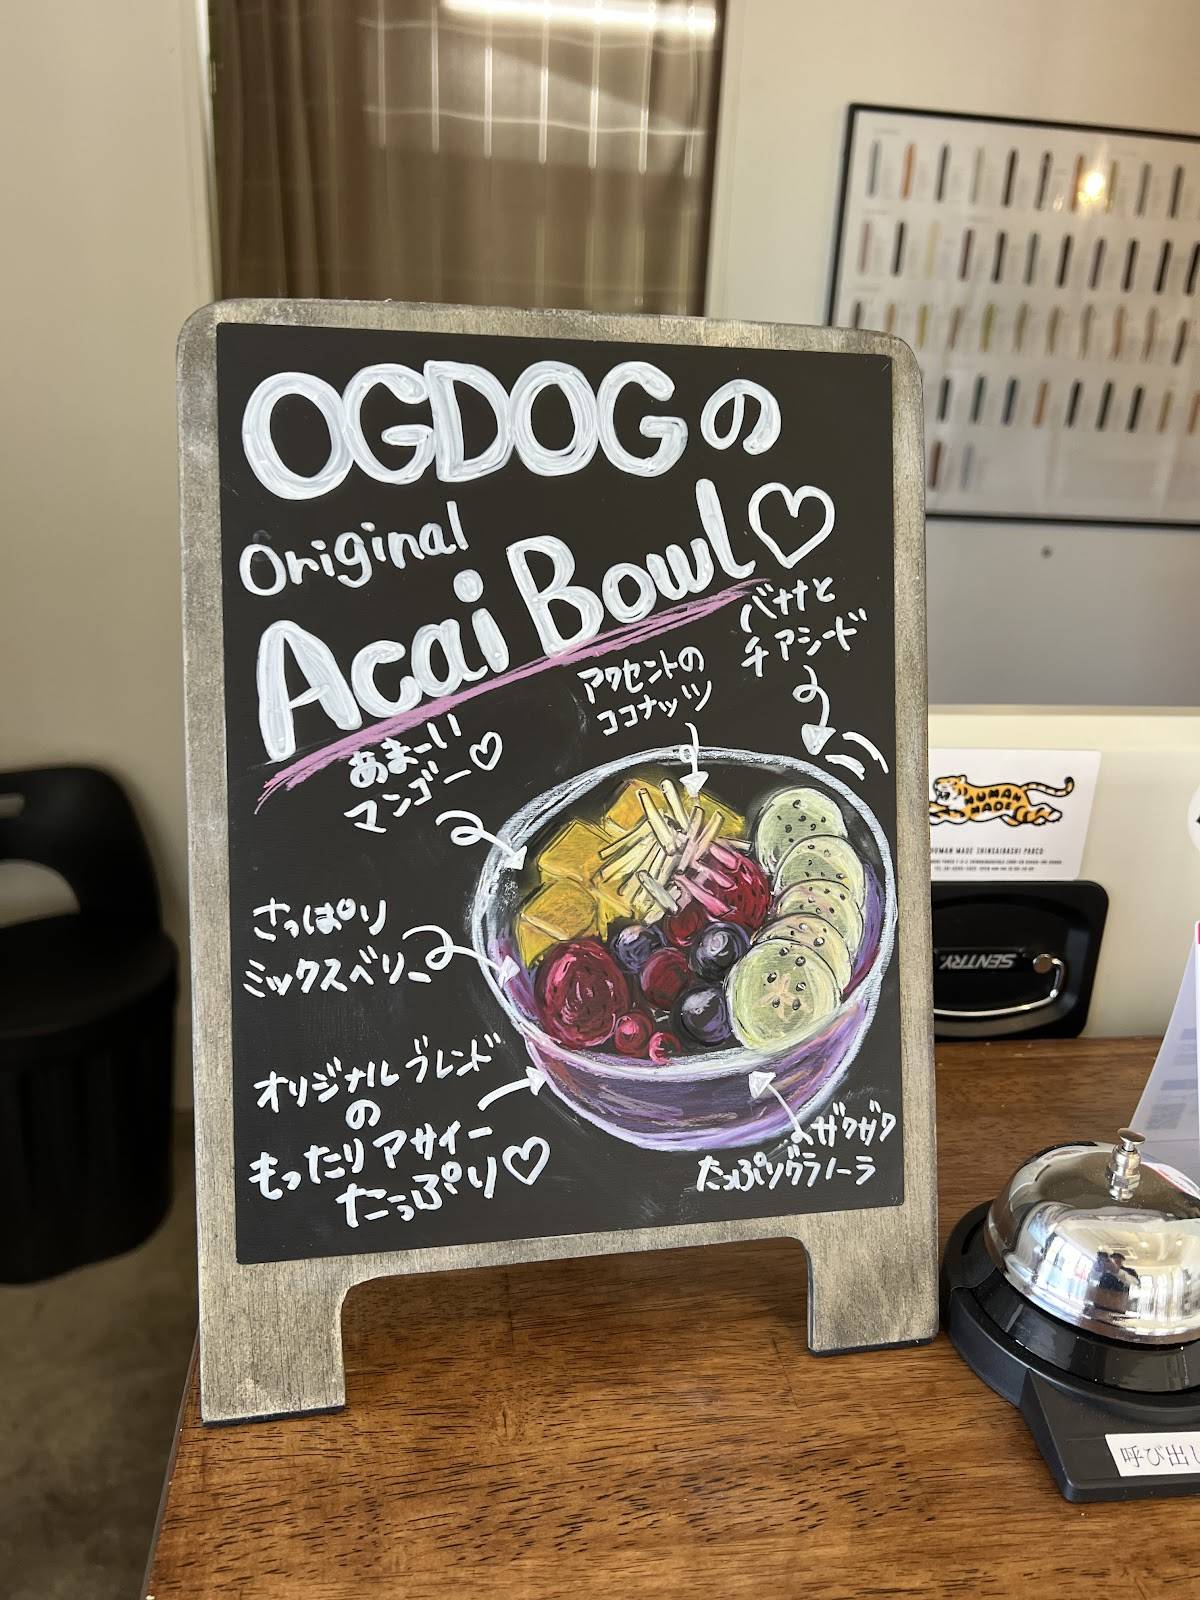 OGDOGの
Original
Acai Bowl♡
バナナと
チアシード
アクセントの
ココナッツ
あまーい
マンゴー♡
さっぱり
ミックスベリー
オリジナルブレンド
の
もったりアサイー
たっぷり♡
ザクザク
たっぷりグラノーラ
HUMAN
MADE
HUMAN MADE SHINSAIBASHI PARCO
SENTRY
呼び出し